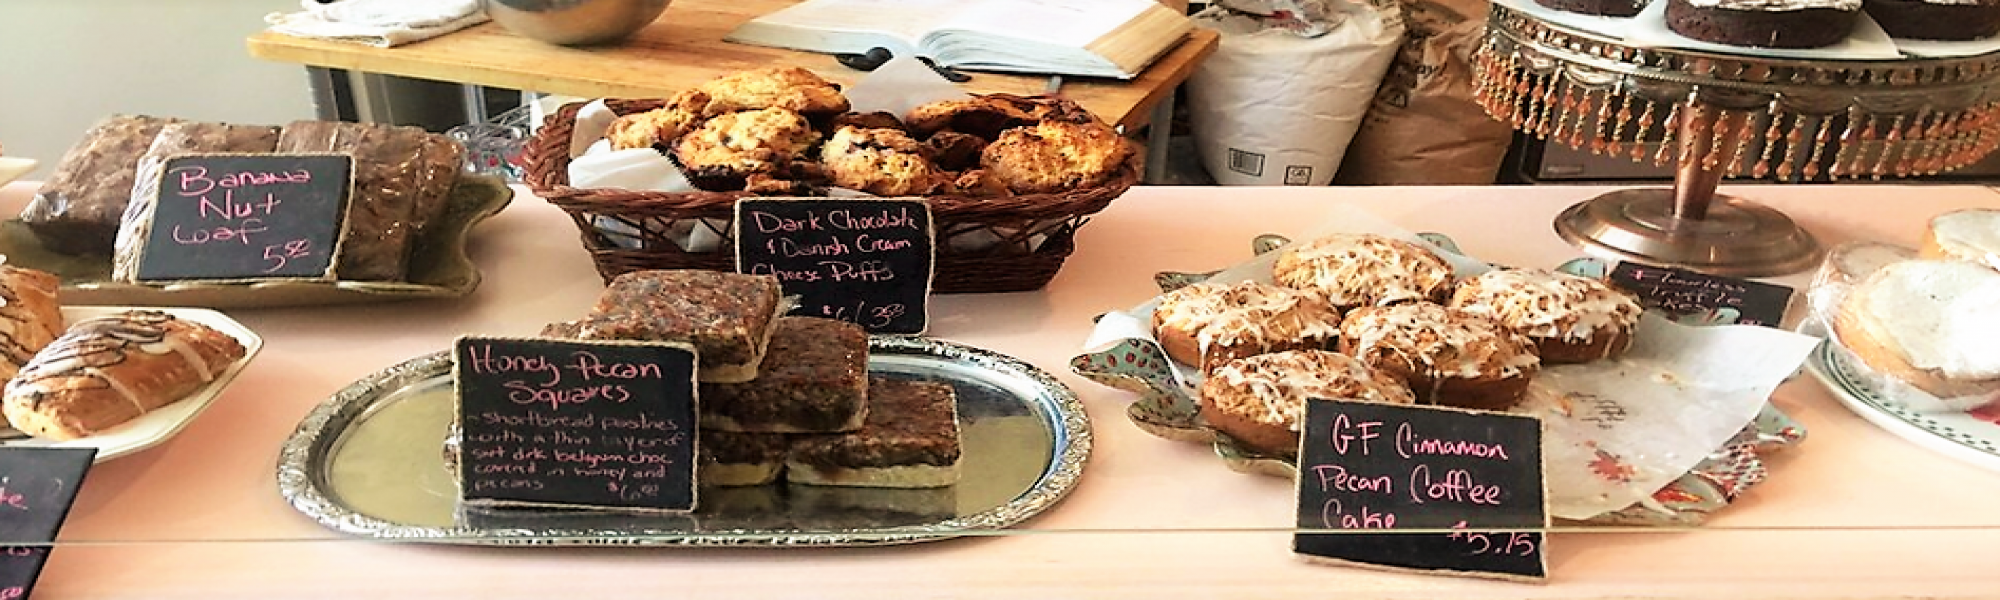 Banana
Nut
Loaf
5.50
Dark Chocolate
& Danish Cream
Cheese Puffs
Honey-Pecan
Squares
- Shortbread pastries
with a thin layer of
soft drk belgium choc
covered in honey and
pecans
GF Cinnamon
Pecan Coffee
Cake
$5.75
Flourless